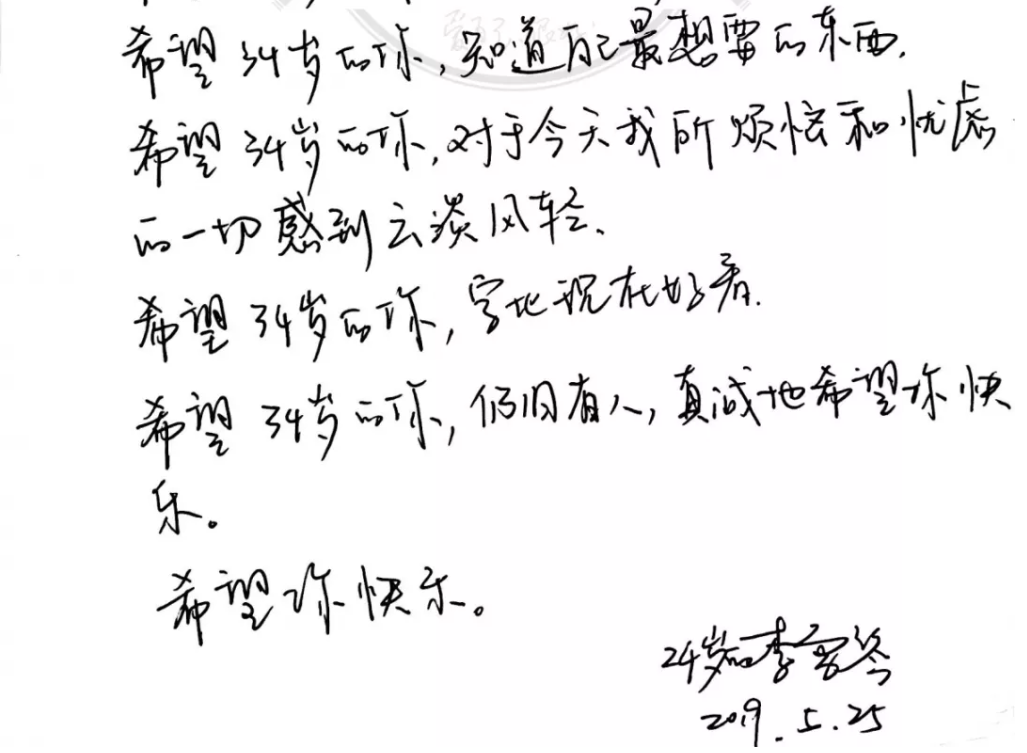 希望34岁的你,知道自己最想要的东西.
希望34岁的你,对于今天我所烦恼和忧虑
的一切感到云淡风轻.
希望34岁的你,字比现在好看.
希望34岁的你,仍旧有人,真诚地希望你快
乐。
希望你快乐。
24岁的李雪琴
2019.5.25